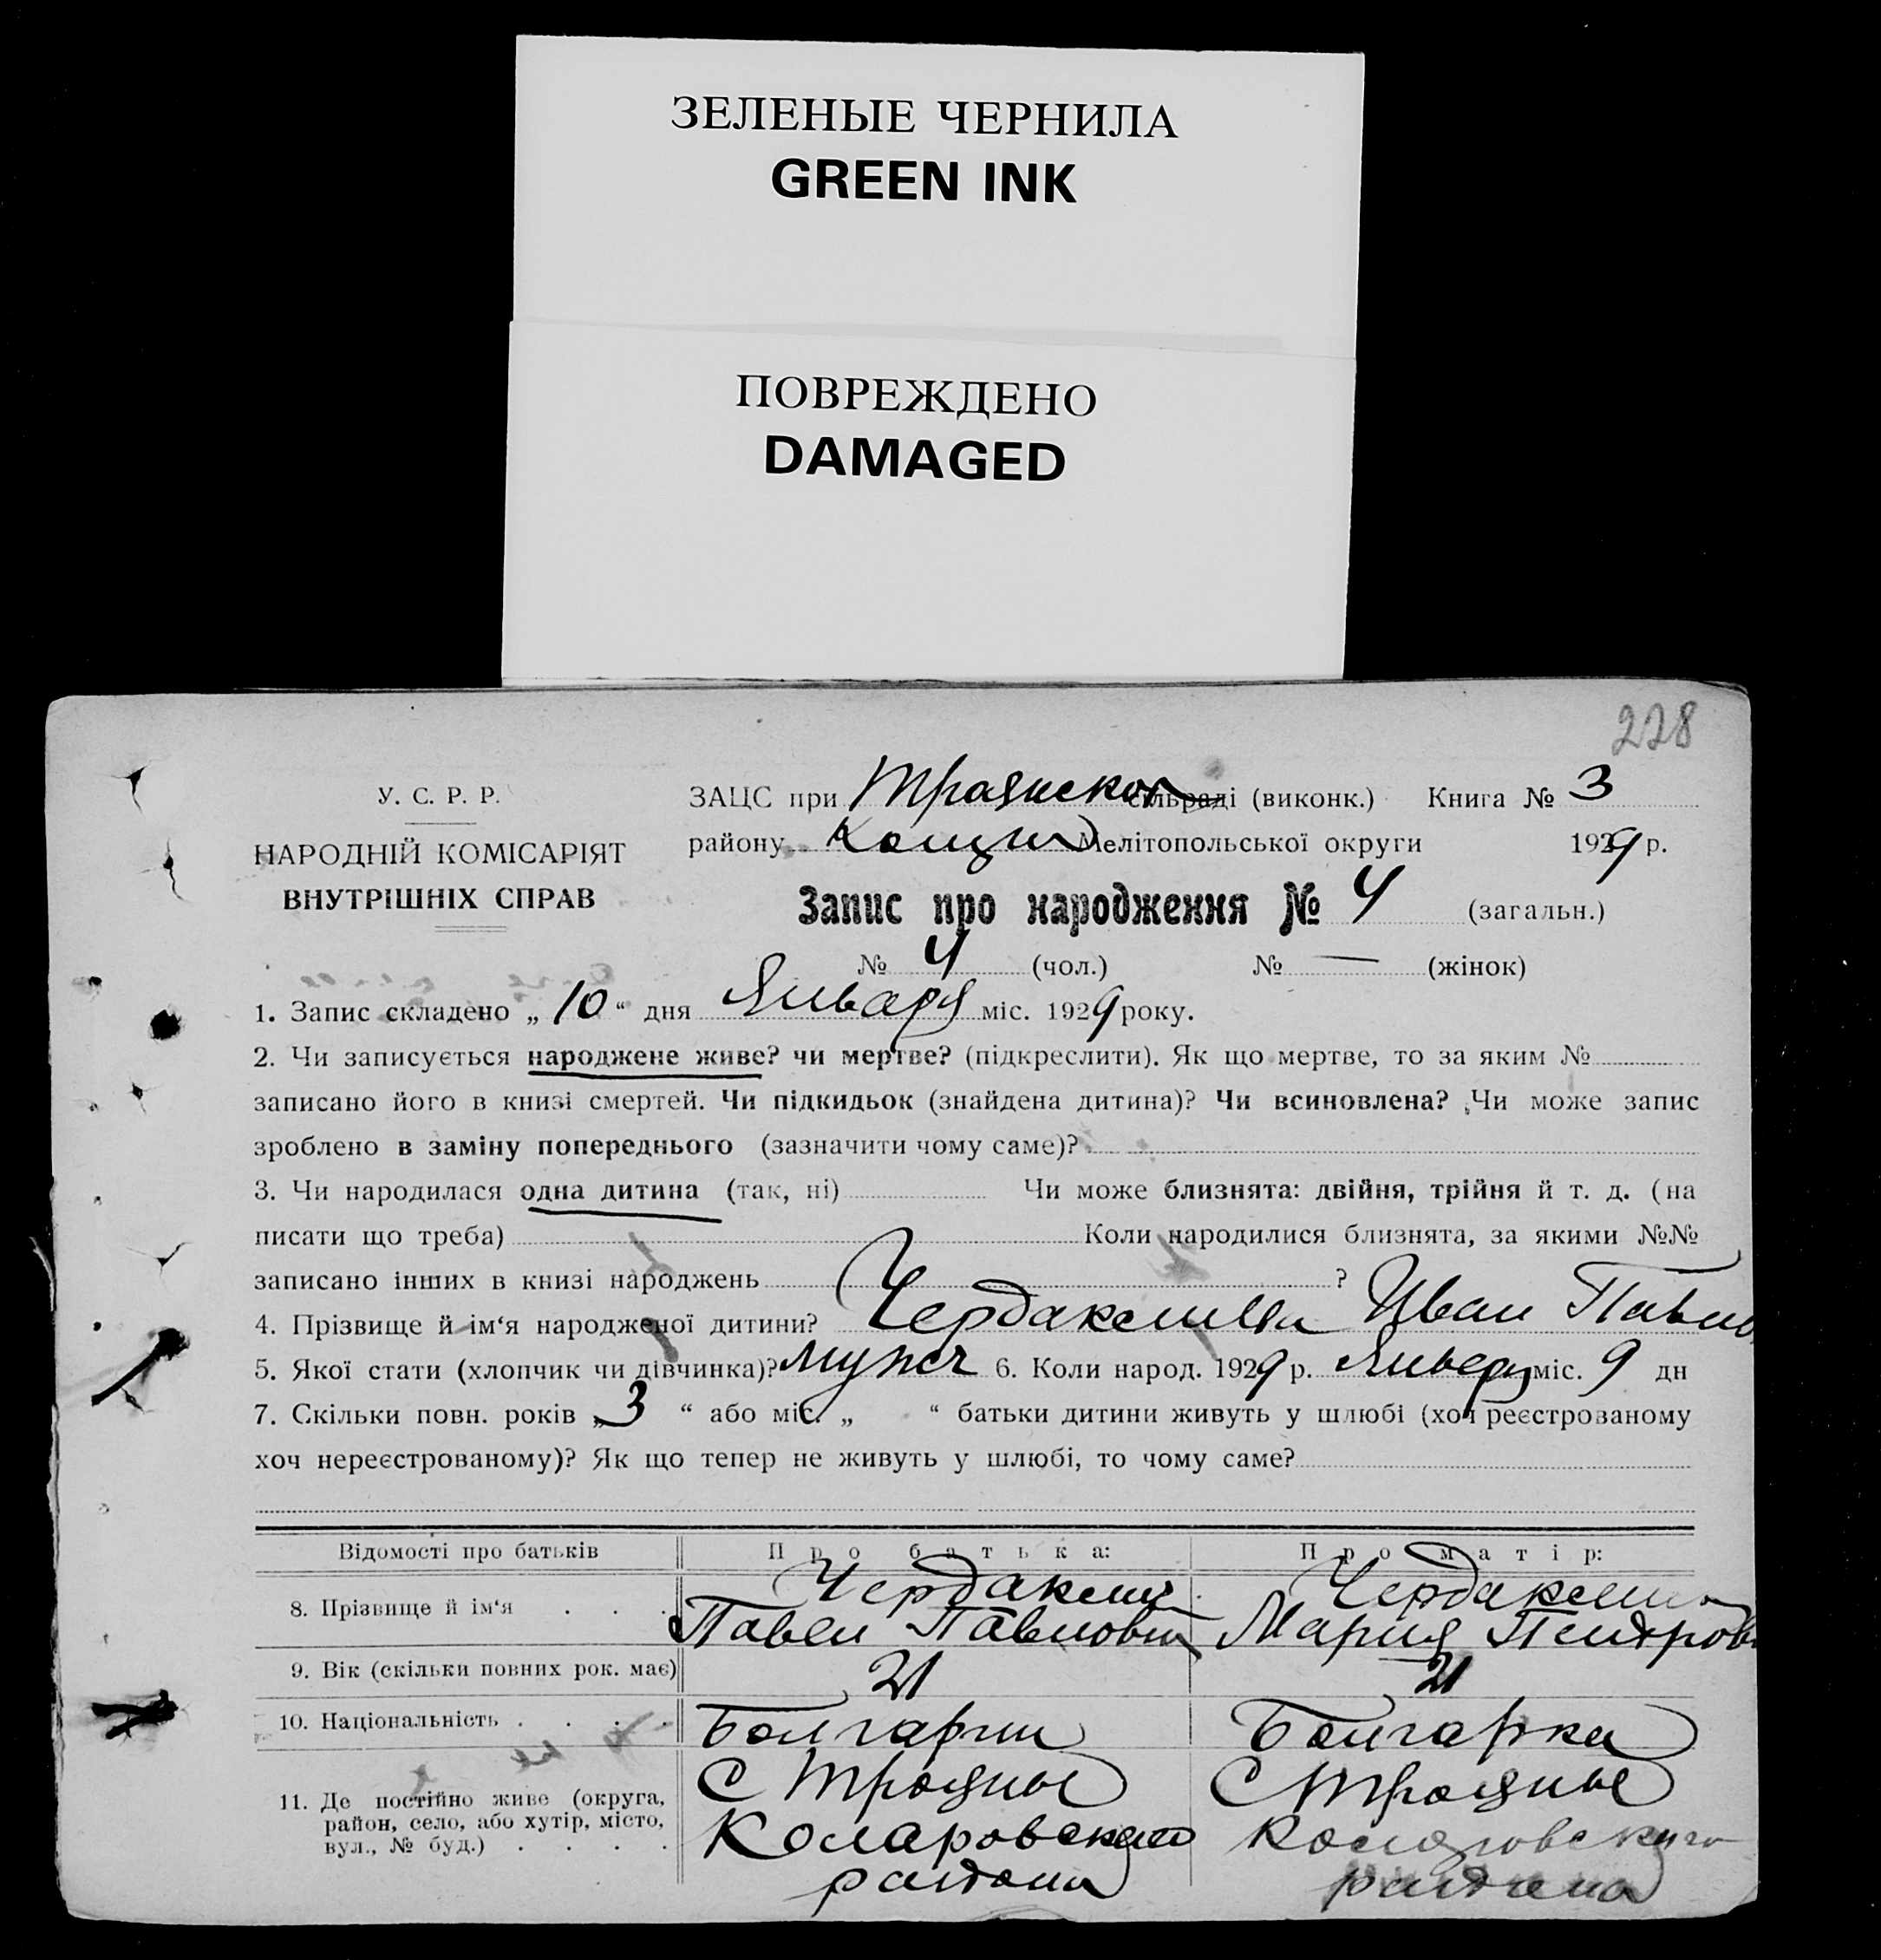 ЗЕЛЕНЫЕ ЧЕРНИЛА
GREEN INK
ПОВРЕЖДЕНО
DAMAGED
228
У. С. Р. Р.
НАРОДНІЙ КОМІСАРІЯТ
ВНУТРІШНІХ СПРАВ
ЗАЦС при Траянской сільраді (виконк.) Книга № 3
району Мелітопольської округи 1929 р.
Запис про народження № 4 (загальн.)
№ 4 (чол.) № — (жінок)
1. Запис складено „ 10 “ дня Января міс. 1929 року.
2. Чи записується народжене живе? чи мертве? (підкреслити). Як що мертве, то за яким №
записано його в книзі смертей. Чи підкидьок (знайдена дитина)? Чи всиновлена? Чи може запис
зроблено в заміну попереднього (зазначити чому саме)?
3. Чи народилася одна дитина (так, ні) Чи може близнята: двійня, трійня й т. д. (на
писати що треба) Коли народилися близнята, за якими №№
записано інших в книзі народжень ?
4. Прізвище й ім‘я народженої дитини? Иван Павло
5. Якої стати (хлопчик чи дівчинка)? мужск 6. Коли народ. 1929 р. Января міс. 9 дн
7. Скільки повн. років „ 3 “ або міс. „ “ батьки дитини живуть у шлюбі (хоч реєстрованому
хоч нереєстрованому)? Як що тепер не живуть у шлюбі, то чому саме?
Відомості про батьків Про батька: Про матір:
8. Прізвище й ім‘я . . . Павел Павлович Мария
9. Вік (скільки повних рок. має) 21 21
10. Національність . . . . Болгарин Болгарка
11. Де постійно живе (округа,
район, село, або хутір, місто,
вул., № буд.) . . . .
С Трояны С Трояны
Коларовского Коларовского
района района